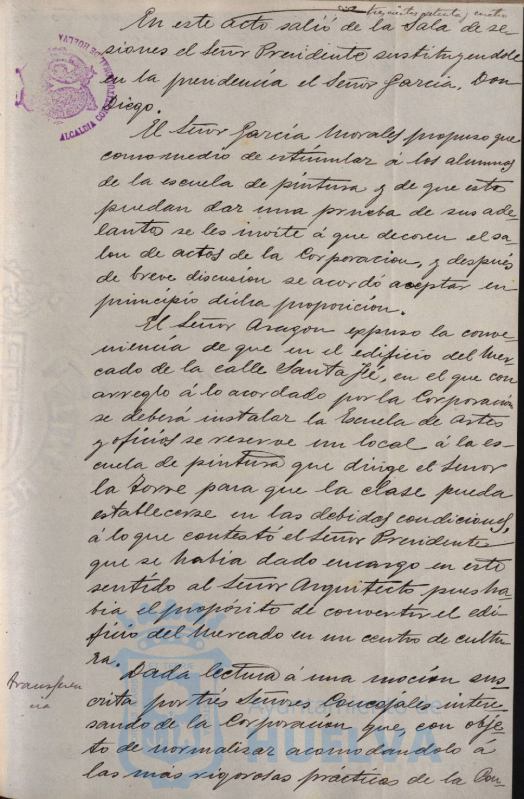 trescientos setenta y cuatro
En este acto salió de la Sala de se-
siones el Señor Presidente sustituyendole
en la presidencia el Señor Garcia, Don
Diego.
El Señor García Morales propuso que
como medio de estimular á los alumnos
de la escuela de pintura y de que estos
puedan dar una prueba de sus ade-
lantos se les invite á que decoren el sa-
lon de actos de la Corporacion, y después
de breve discusion se acordó aceptar en
principio dicha proposición.
El Señor Aragon expuso la conve-
niencia de que en el edificio del Mer-
cado de la calle Santa Fé, en el que con
arreglo á lo acordado por la Corporación
se deberá instalar la Escuela de Artes
y oficios se reserve un local á la es-
cuela de pintura que dirige el Señor
la Torre para que la clase pueda
establecerse en las debidas condiciones,
á lo que contestó el Señor Presidente
que se habia dado encargo en este
sentido al Señor Arquitecto pues ha-
bia el propósito de convertir el edi-
ficio del Mercado en un centro de cultu-
ra.
transferen
cia
Dada lectura á una mocion sus-
crita por trés Señores Concejales intere-
sando de la Corporación que, con obje-
to de normalizar acomodandolo á
las más rigorosas prácticas de la Con-
ALCALDIA CONSTITUCIONAL DE HUELVA
Ayuntamiento de
HUELVA